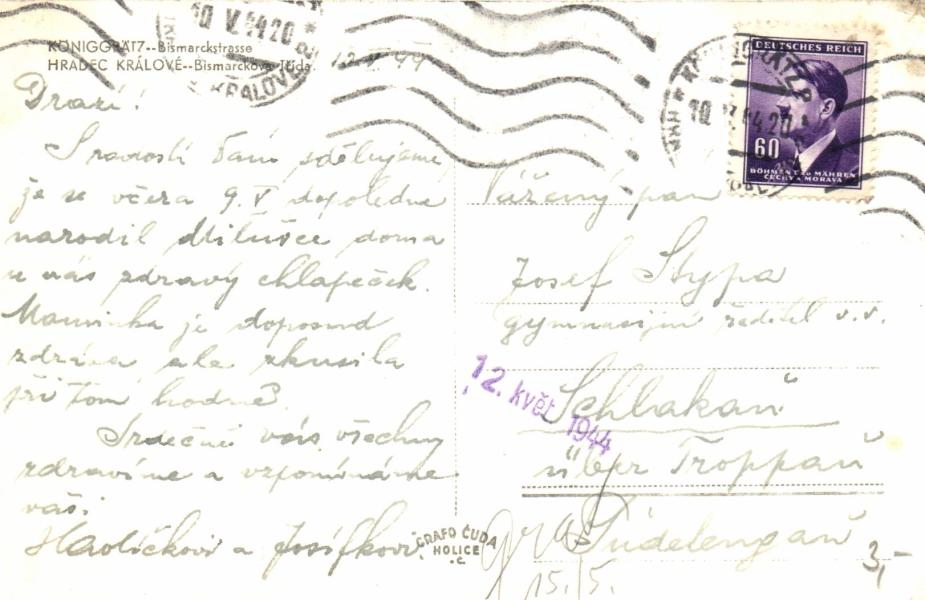 KÖNIGGRÄTZ--Bismarckstrasse
HRADEC KRÁLOVÉ--Bismarckova třída.
10 V 44 20
KRÁLOVÉ
DEUTSCHES REICH
60
BÖHMEN UND MÄHREN
ČECHY A MORAVA
Drazí!
S radostí Vám sdělujeme
že se včera 9. V dopoledne
narodil Milušce doma
u nás zdravý chlapeček.
Maminka je doposud
zdráva ale zkusila
při tom hodně.
Srdečně vás všechny
zdravíme a vzpomínáme
vaši
Havlíčkovi a Josífkovi.
Vážený pan
Josef Stypa
gymnasijní ředitel v.v.
12. květ 1944
Schlakau
über Troppau
Sudetengau
GRAFO ČUDA
HOLICE
15./5.
3,-